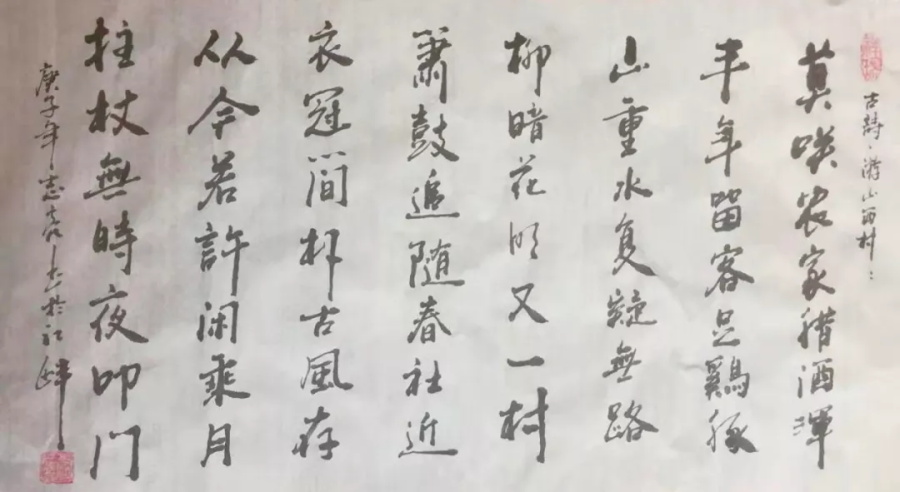 古詩：游山西村：
莫笑农家腊酒渾
丰年留客足鷄豚
山重水复疑無路
柳暗花明又一村
簫鼓追随春社近
衣冠简朴古風存
从今若許闲乘月
拄杖無時夜叩门
庚子年志亮书於江畔